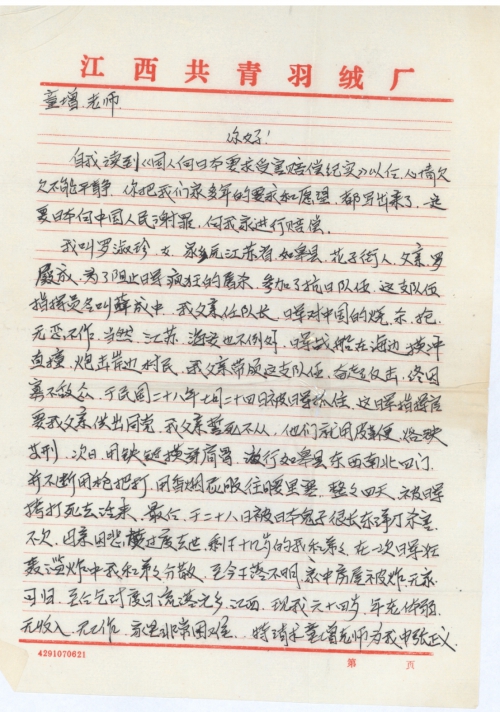 江西共青羽绒厂
童增老师
你好！
自我读到《国人向日本要求受害赔偿纪实》以任，心情久
久不能平静，你把我们家多年的要求和愿望，都写出来了，一定
要日本向中国人民谢罪，向我家进行赔偿。
我叫罗淑珍 女 家乡元江苏省，如皋县，花子街人，父亲罗
殿成，为了阻止日军疯狂的屠杀，参加了抗日队伍，这支队伍
指挥员名叫薛成中，我父亲任队长，日军对中国的烧、杀、抢，
无恶不作，当然，江苏、海安也不例外，日军战舰在海边横冲
直撞，炮击岸边村民，我父亲带领这支队伍，奋起反击，终因
寡不敌众，于民国二十八年七月二十四日被日军抓住，这日军指挥官
要我父亲供出同党，我父亲誓死不从，他们就用皮鞭、烙铁
等刑，次日，用铁链锁肩胃，游行如皋县东西南北四门，
并不断用枪把打，用香烟在眼往里，整整四天，被日军
拷打死去活来，最后，于二十八日被日本鬼子很长东洋刀杀害
不久，母亲因悲过度去世，剩下十几岁的我和弟弟，在一次日军狂
轰滥炸中我和弟弟分散，至今下落不明，家中房屋被炸，无家
可归，至乞讨度日流落它乡，江西，现我六十四岁 年在体弱，
无收入，无工作，家里非常困难，特请求童增老师为我申张正义
4291070621
第 页